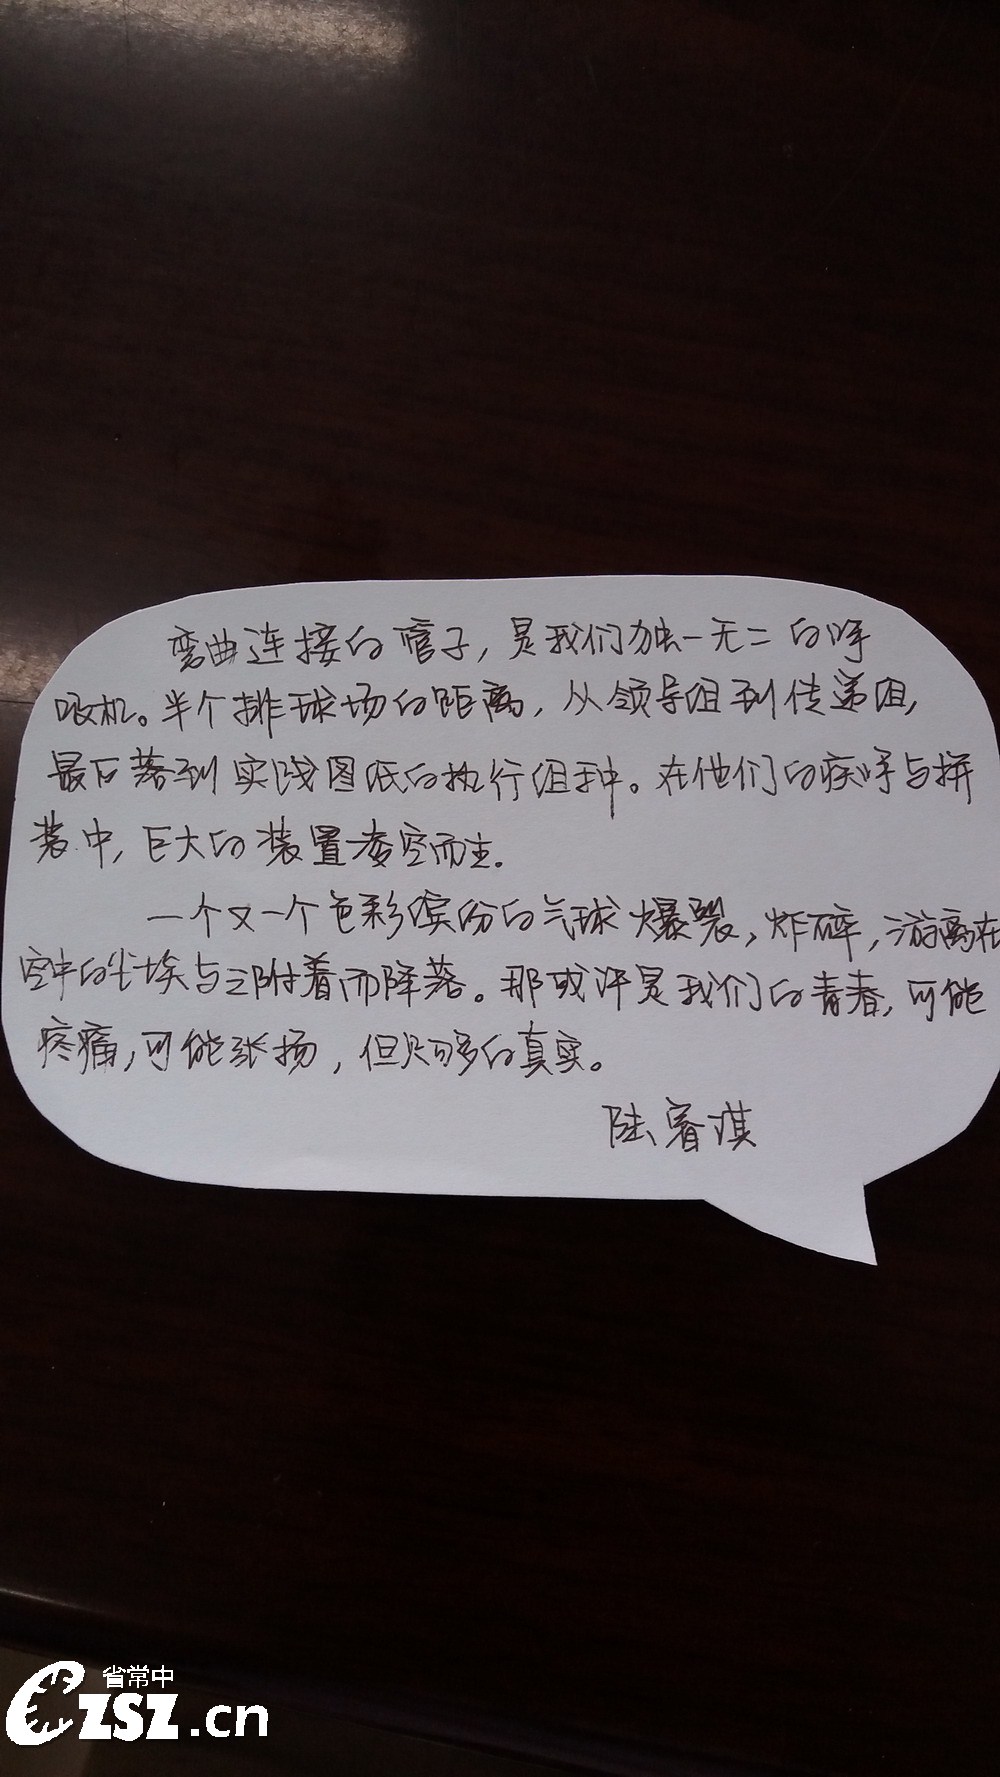 弯曲连接的管子，是我们独一无二的呼
吸机。半个排球场的距离，从领导组到传递组，
最后落到实践图纸的执行组手中。在他们的疾呼与拼
装中，巨大的装置凌空而生。
一个又一个色彩缤纷的气球爆裂，炸碎，游离在
空中的尘埃与之附着而降落。那或许是我们的青春，可能
疼痛，可能张扬，但足够的真实。
陆睿淇
省常中
CZSZ.cn